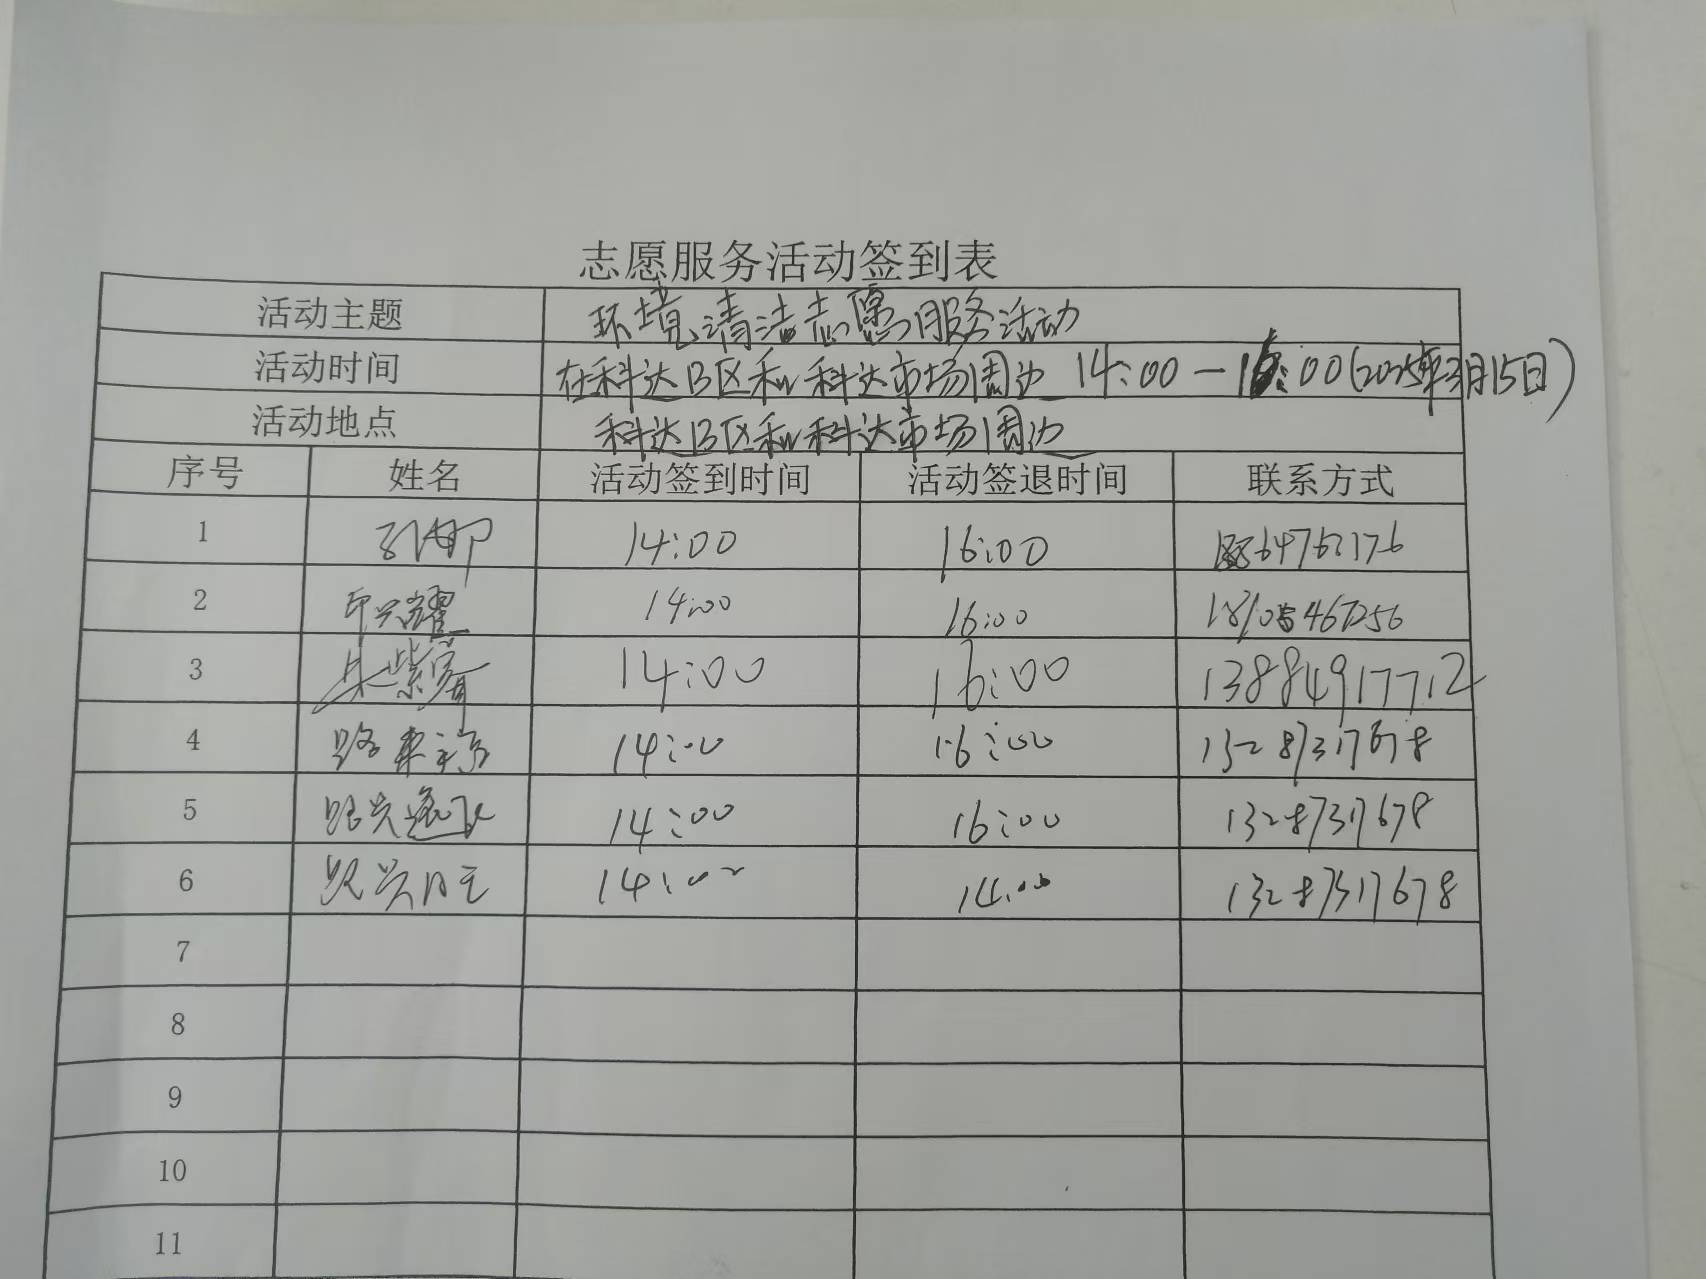 志愿服务活动签到表
活动主题 环境清洁志愿服务活动
活动时间 在科达B区和科达市场周边 14:00-16:00(2025年3月15日)
活动地点 科达B区和科达市场周边
序号 姓名 活动签到时间 活动签退时间 联系方式
1 14:00 16:00
2 14:00 16:00
3 朱紫 14:00 16:00 13884917712
4 14:00 16:00 13287317678
5 14:00 16:00 13287317678
6 14:00 14:00 13287317678
7
8
9
10
11